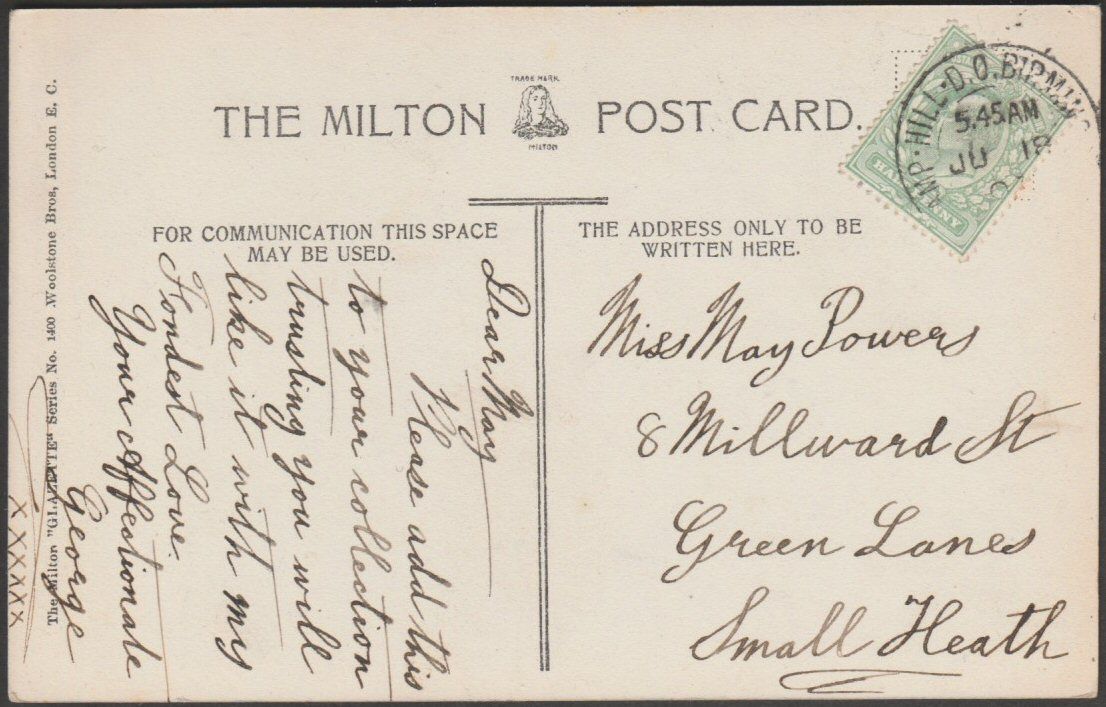 TRADE MARK
THE MILTON POST CARD.
MILTON
FOR COMMUNICATION THIS SPACE
MAY BE USED.
THE ADDRESS ONLY TO BE
WRITTEN HERE.
HILL·D.O. BIRMING
5.45AM
JU 18
HALFPENNY
Dear May
Please add this
to your collection
trusting you will
like it with my
Fondest Love.
Your Affectionate
George
xxxxxx
Miss May Powers
8 Millward St
Green Lanes
Small Heath
The Milton "GLAZETTE" Series No. 1400 Woolstone Bros, London E. C.